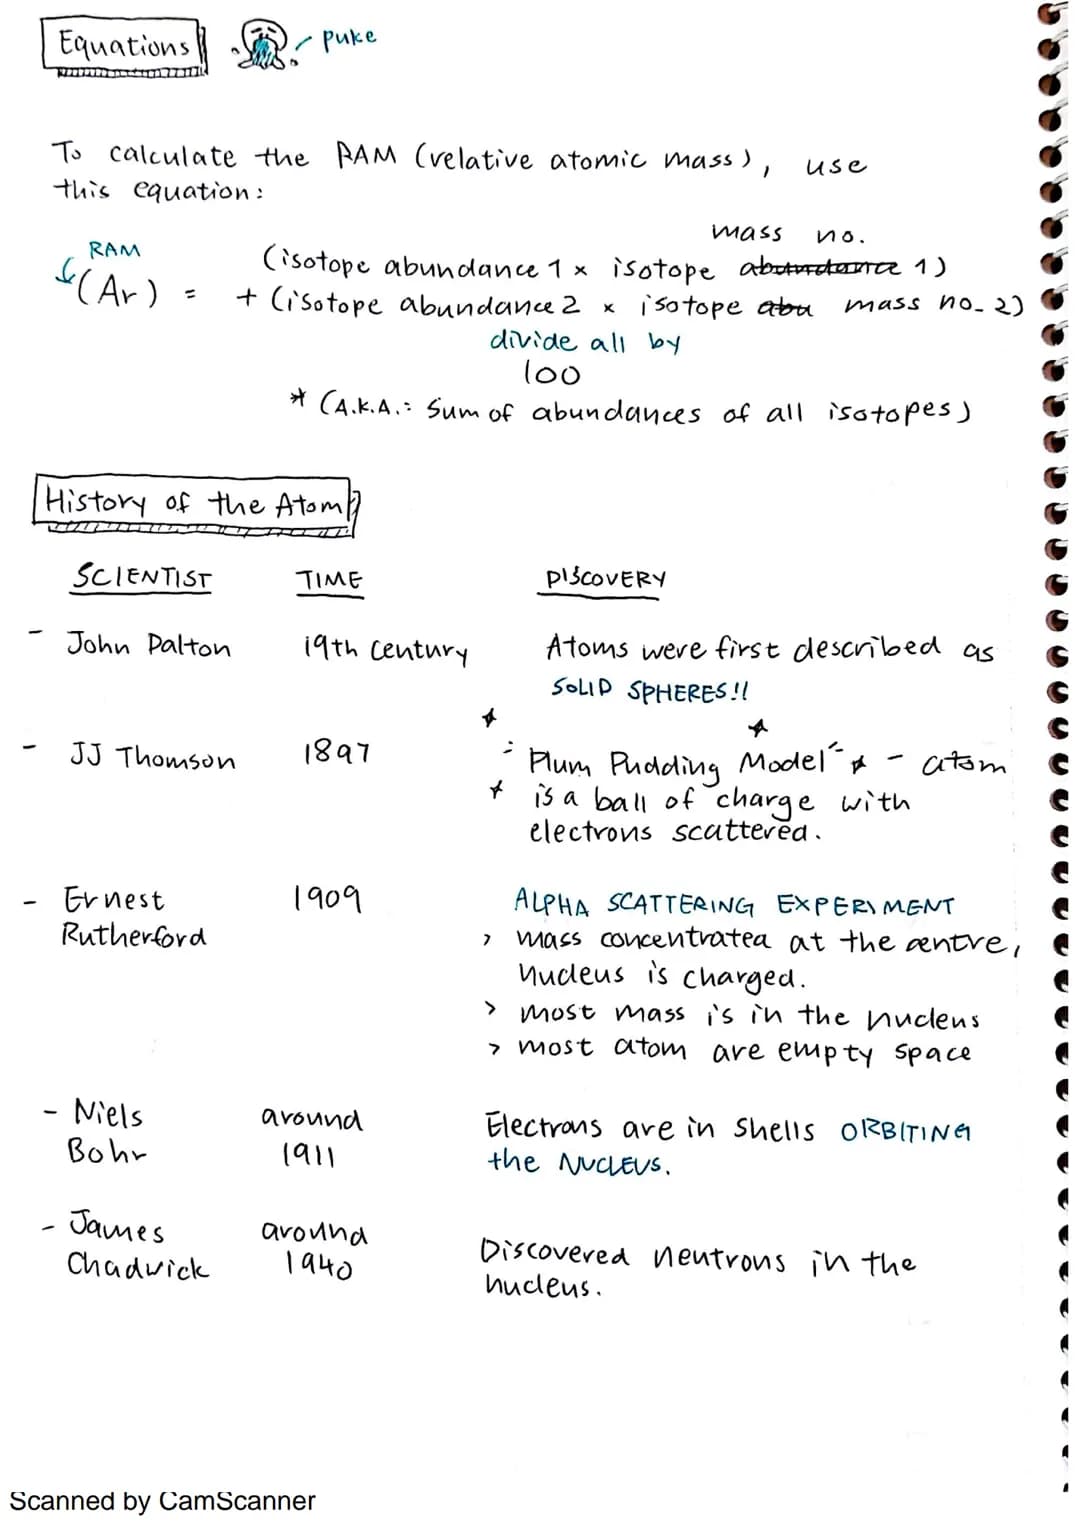 Equations
puke
To calculate the RAM (relative atomic mass), use
this equation:
mass no.
RAM
(isotope abundance 1 x isotope abundance 1)
(Ar) = + (isotope abundance 2 x isotope abu mass no. 2)
divide all by
100
* (A.K.A.: Sum of abundances of all isotopes)
History of the Atom
SCIENTIST TIME DISCOVERY
- John Dalton 19th Century Atoms were first described as
SOLID SPHERES!!
- JJ Thomson 1897 "Plum Pudding Model" - atom
is a ball of charge with
electrons scattered.
- Ernest 1909 ALPHA SCATTERING EXPERIMENT
Rutherford > mass concentrated at the centre,
nucleus is charged.
> most mass is in the nucleus
> most atom are empty space
- Niels around Electrons are in shells ORBITING
Bohr 1911 the NUCLEUS.
- James around Discovered neutrons in the
Chadwick 1940 nucleus.
Scanned by CamScanner